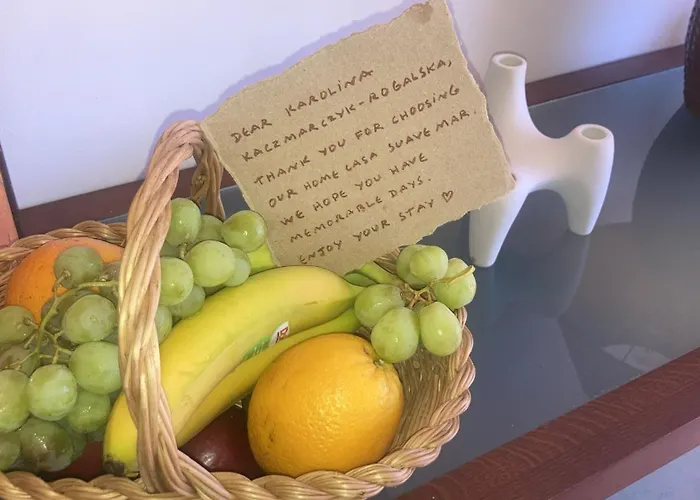 DEAR KAROLINA
KACZMARCZYK-ROGALSKA,
THANK YOU FOR CHOOSING
OUR HOME CASA SUAVE MAR.
WE HOPE YOU HAVE
MEMORABLE DAYS.
ENJOY YOUR STAY ♡